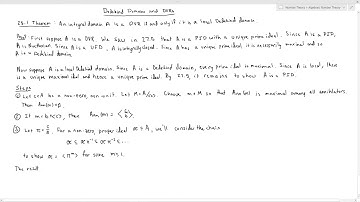 Dedekind Domains and DVRs
25.1 Theorem: An integral domain A is a DVR if and only if it is a local Dedekind domain.
Proof: First suppose A is a DVR. We have in 12.5 that A is a PID with a unique prime ideal. Since A is a PID,
A is Noetherian. Since A is a UFD, A is integrally closed. Since A has a unique prime ideal, it is necessarily maximal and so
A is a Dedekind domain.
Now suppose A is a local Dedekind domain. Since A is a Dedekind domain, every prime ideal is maximal. Since A is local, there
is a unique maximal ideal and hence a unique prime ideal. By 12.5, it remains to show A is a PID.
Steps
① Let c∈A be a non-zero, non unit. Let M = A/(c). Choose m∈M so that Ann(m) is maximal among all annihilators.
Then Ann(m) = p.
② If m = b+(c), then Ann(m) =
③ Let π = c/b. For a non-zero, proper ideal α ≠ A, we'll consider the chain
α ⊆ απ⁻¹ ⊆ απ⁻² ⊆ ...
to show α = (πᵐ) for some m ≥ 1.
The result